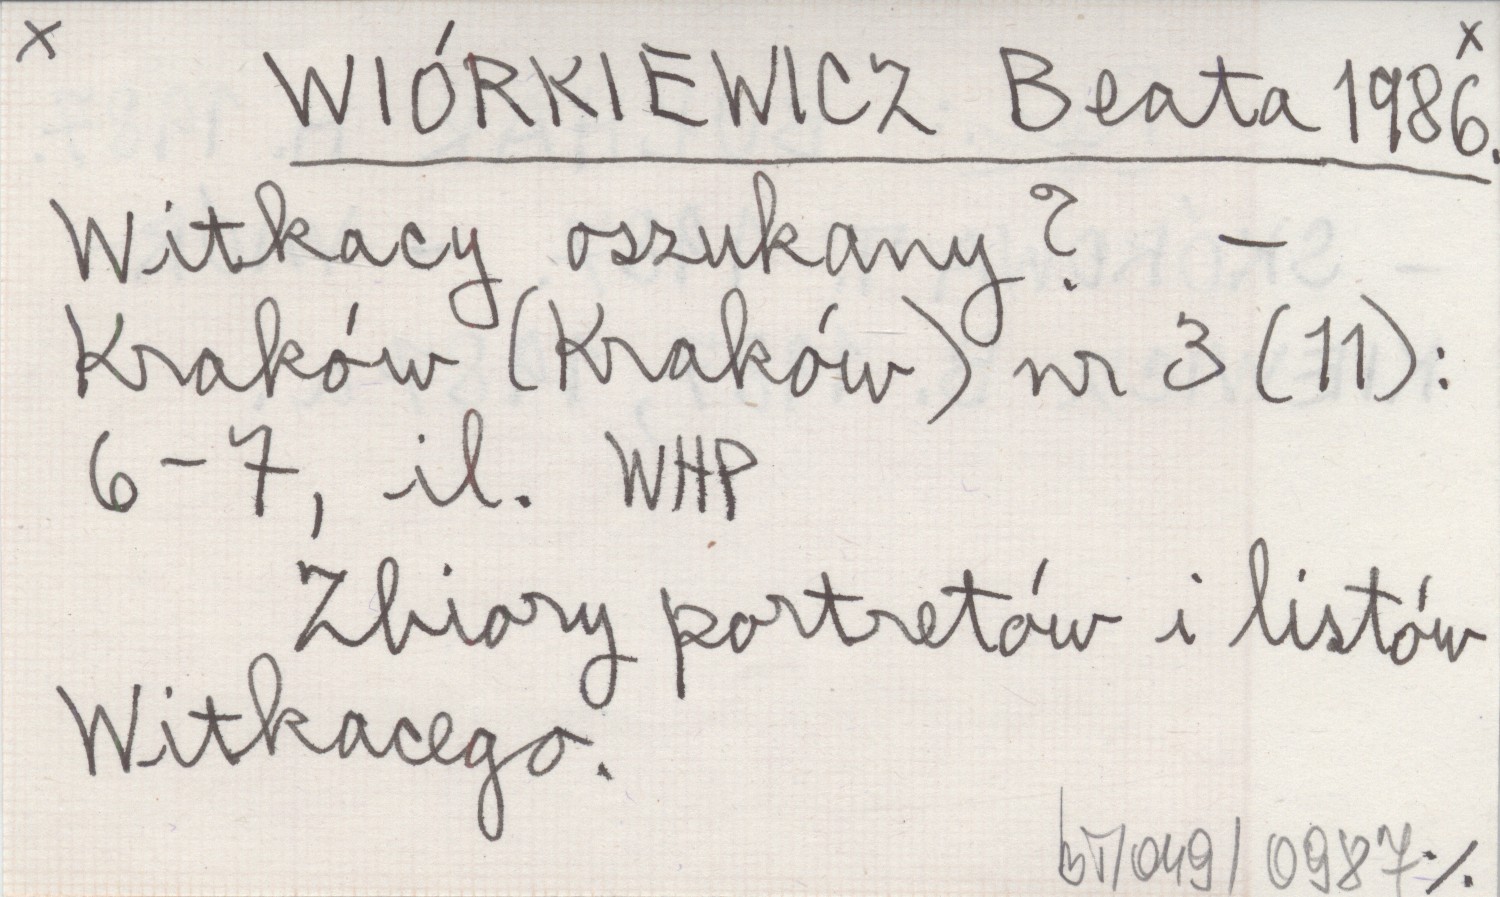 x x
WIÓRKIEWICZ Beata 1986.
Witkacy oszukany? –
Kraków (Kraków) nr 3 (11):
6–7, il. WHP
Zbiory portretów i listów
Witkacego.
/049/0987 ./.